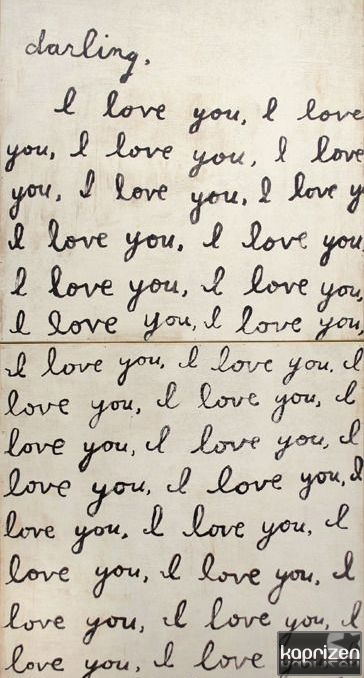 darling,
I love you, I love
you, I love you, I love
you, I love you, I love y
I love you, I love you
I love you, I love you,
I love you, I love you,
I love you, I love you, I
love you, I love you, I
love you, I love you, I
love you, I love you, I
love you, I love you, I
love you, I love you, I
love you, I love you, I
love you, I love
kaprizen